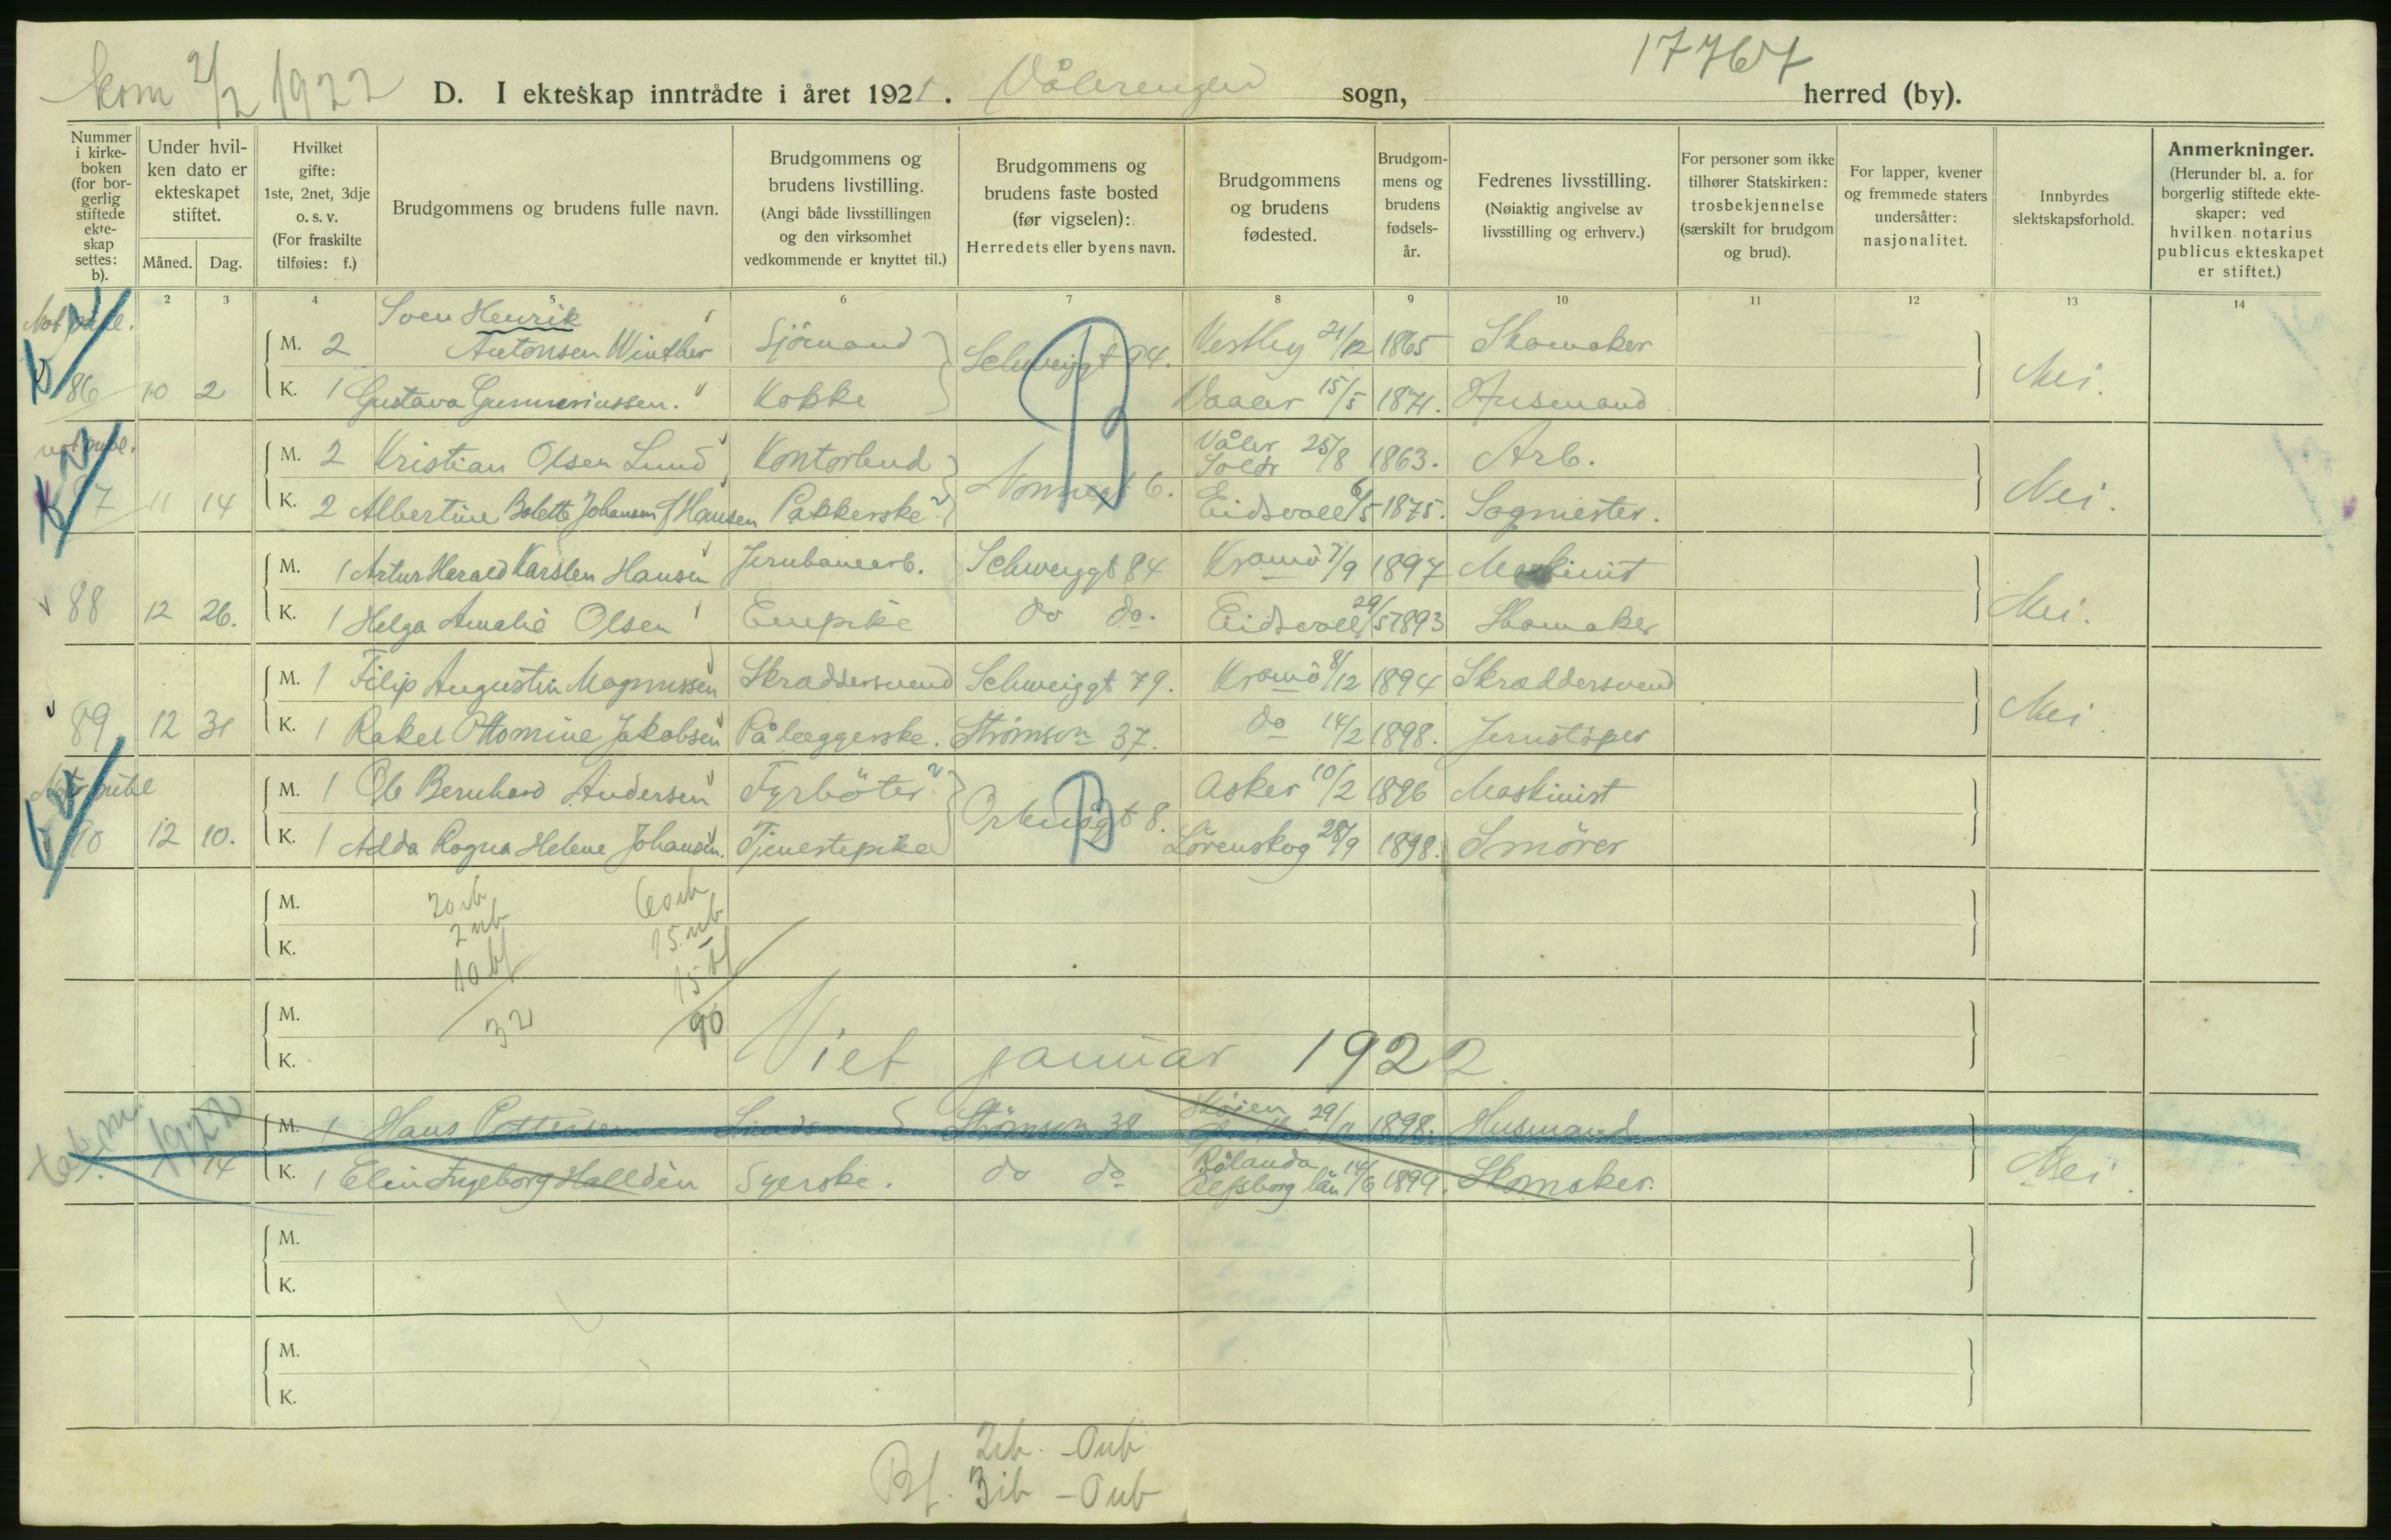 kom 2/2 1922
D. I ekteskap inntrådte i året 1921. Vålerengen sogn, herred (by).
17767
Nummer i kirke-boken (for bor-gerlig stiftede ekte-skap settes: b).
Under hvil-ken dato er ekteskapet stiftet.
Måned. Dag.
Hvilket gifte: 1ste, 2net, 3dje o. s. v. (For fraskilte tilføies: f.)
Brudgommens og brudens fulle navn.
Brudgommens og brudens livstilling. (Angi både livsstillingen og den virksomhet vedkommende er knyttet til.)
Brudgommens og brudens faste bosted (før vigselen): Herredets eller byens navn.
Brudgommens og brudens fødested.
Brudgom-mens og brudens fødsels-år.
Fedrenes livsstilling. (Nøiaktig angivelse av livsstilling og erhverv.)
For personer som ikke tilhører Statskirken: trosbekjennelse (særskilt for brudgom og brud).
For lapper, kvener og fremmede staters undersåtter: nasjonalitet.
Innbyrdes slektskapsforhold.
Anmerkninger. (Herunder bl. a. for borgerlig stiftede ekte-skaper: ved hvilken notarius publicus ekteskapet er stiftet.)
2 3 4 5 6 7 8 9 10 11 12 13 14
Not publ.
Sven Henrik
M. 2 Antonsen Winther Sjömand Schweiggt 94. Vestby 21/12 1865 Skomaker
86 10 2 K. 1 Gustava Gunneriussen. Kokke Vaaler 15/5 1871. Husmand Nei.
not publ.
M. 2 Kristian Olsen Lund Kontorbud Nonnegt 6. Våler Solør 25/8 1863. Arb.
87 11 14 K. 2 Albertine Bolette Johansen f Hansen Pakkerske Eidsvoll 6/5 1875. Sagmester. Nei.
M. 1 Artur Harald Karsten Hansen Jernbanearb. Schweiggt 84 Kramö 7/9 1897 Maskinist
88 12 26. K. 1 Helga Amalie Olsen Enepike do do. Eidsvoll 29/5 1893 Skomaker Nei.
M. 1 Filip Augustin Magnussen Skraddersvend Schweiggt 79. Kramö 8/12 1894 Skræddersvend
89 12 31 K. 1 Rakel Ottomine Jakobsen Pålæggerske. Strømsvn 37. do 14/2 1898. Jernstöper Nei.
Not publ
M. 1 Ole Bernhard Andersen Fyrböter Orknögt 8. Asker 10/2 1896 Maskinist
90 12 10. K. 1 Adda Ragna Helene Johansen. Tjenestepike Lörenskog 28/9 1898. Smörer
M. 20 ib 60 ib
2 ub 15 ub
K. 10 bf 15 bf
M. 32 90
K. Viet januar 1922
M. 1 Hans Pettersen Strömsvn 38 Skoien 29/11 1898. Husmand
1922
14 K. 1 Elin Ingeborg Halldèn Syerske. do do Rölanda Elfsborg län 14/6 1899. Skomaker. Nei.
M.
K.
M.
K.
2ib - 0ub
Bf. 3ib - 0ub